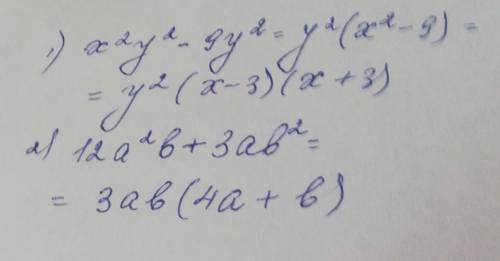 1) x²y² - 9y² = y²(x² - 9) =
= y² (x - 3)(x + 3)
2) 12a²b + 3ab² =
= 3ab(4a + b)